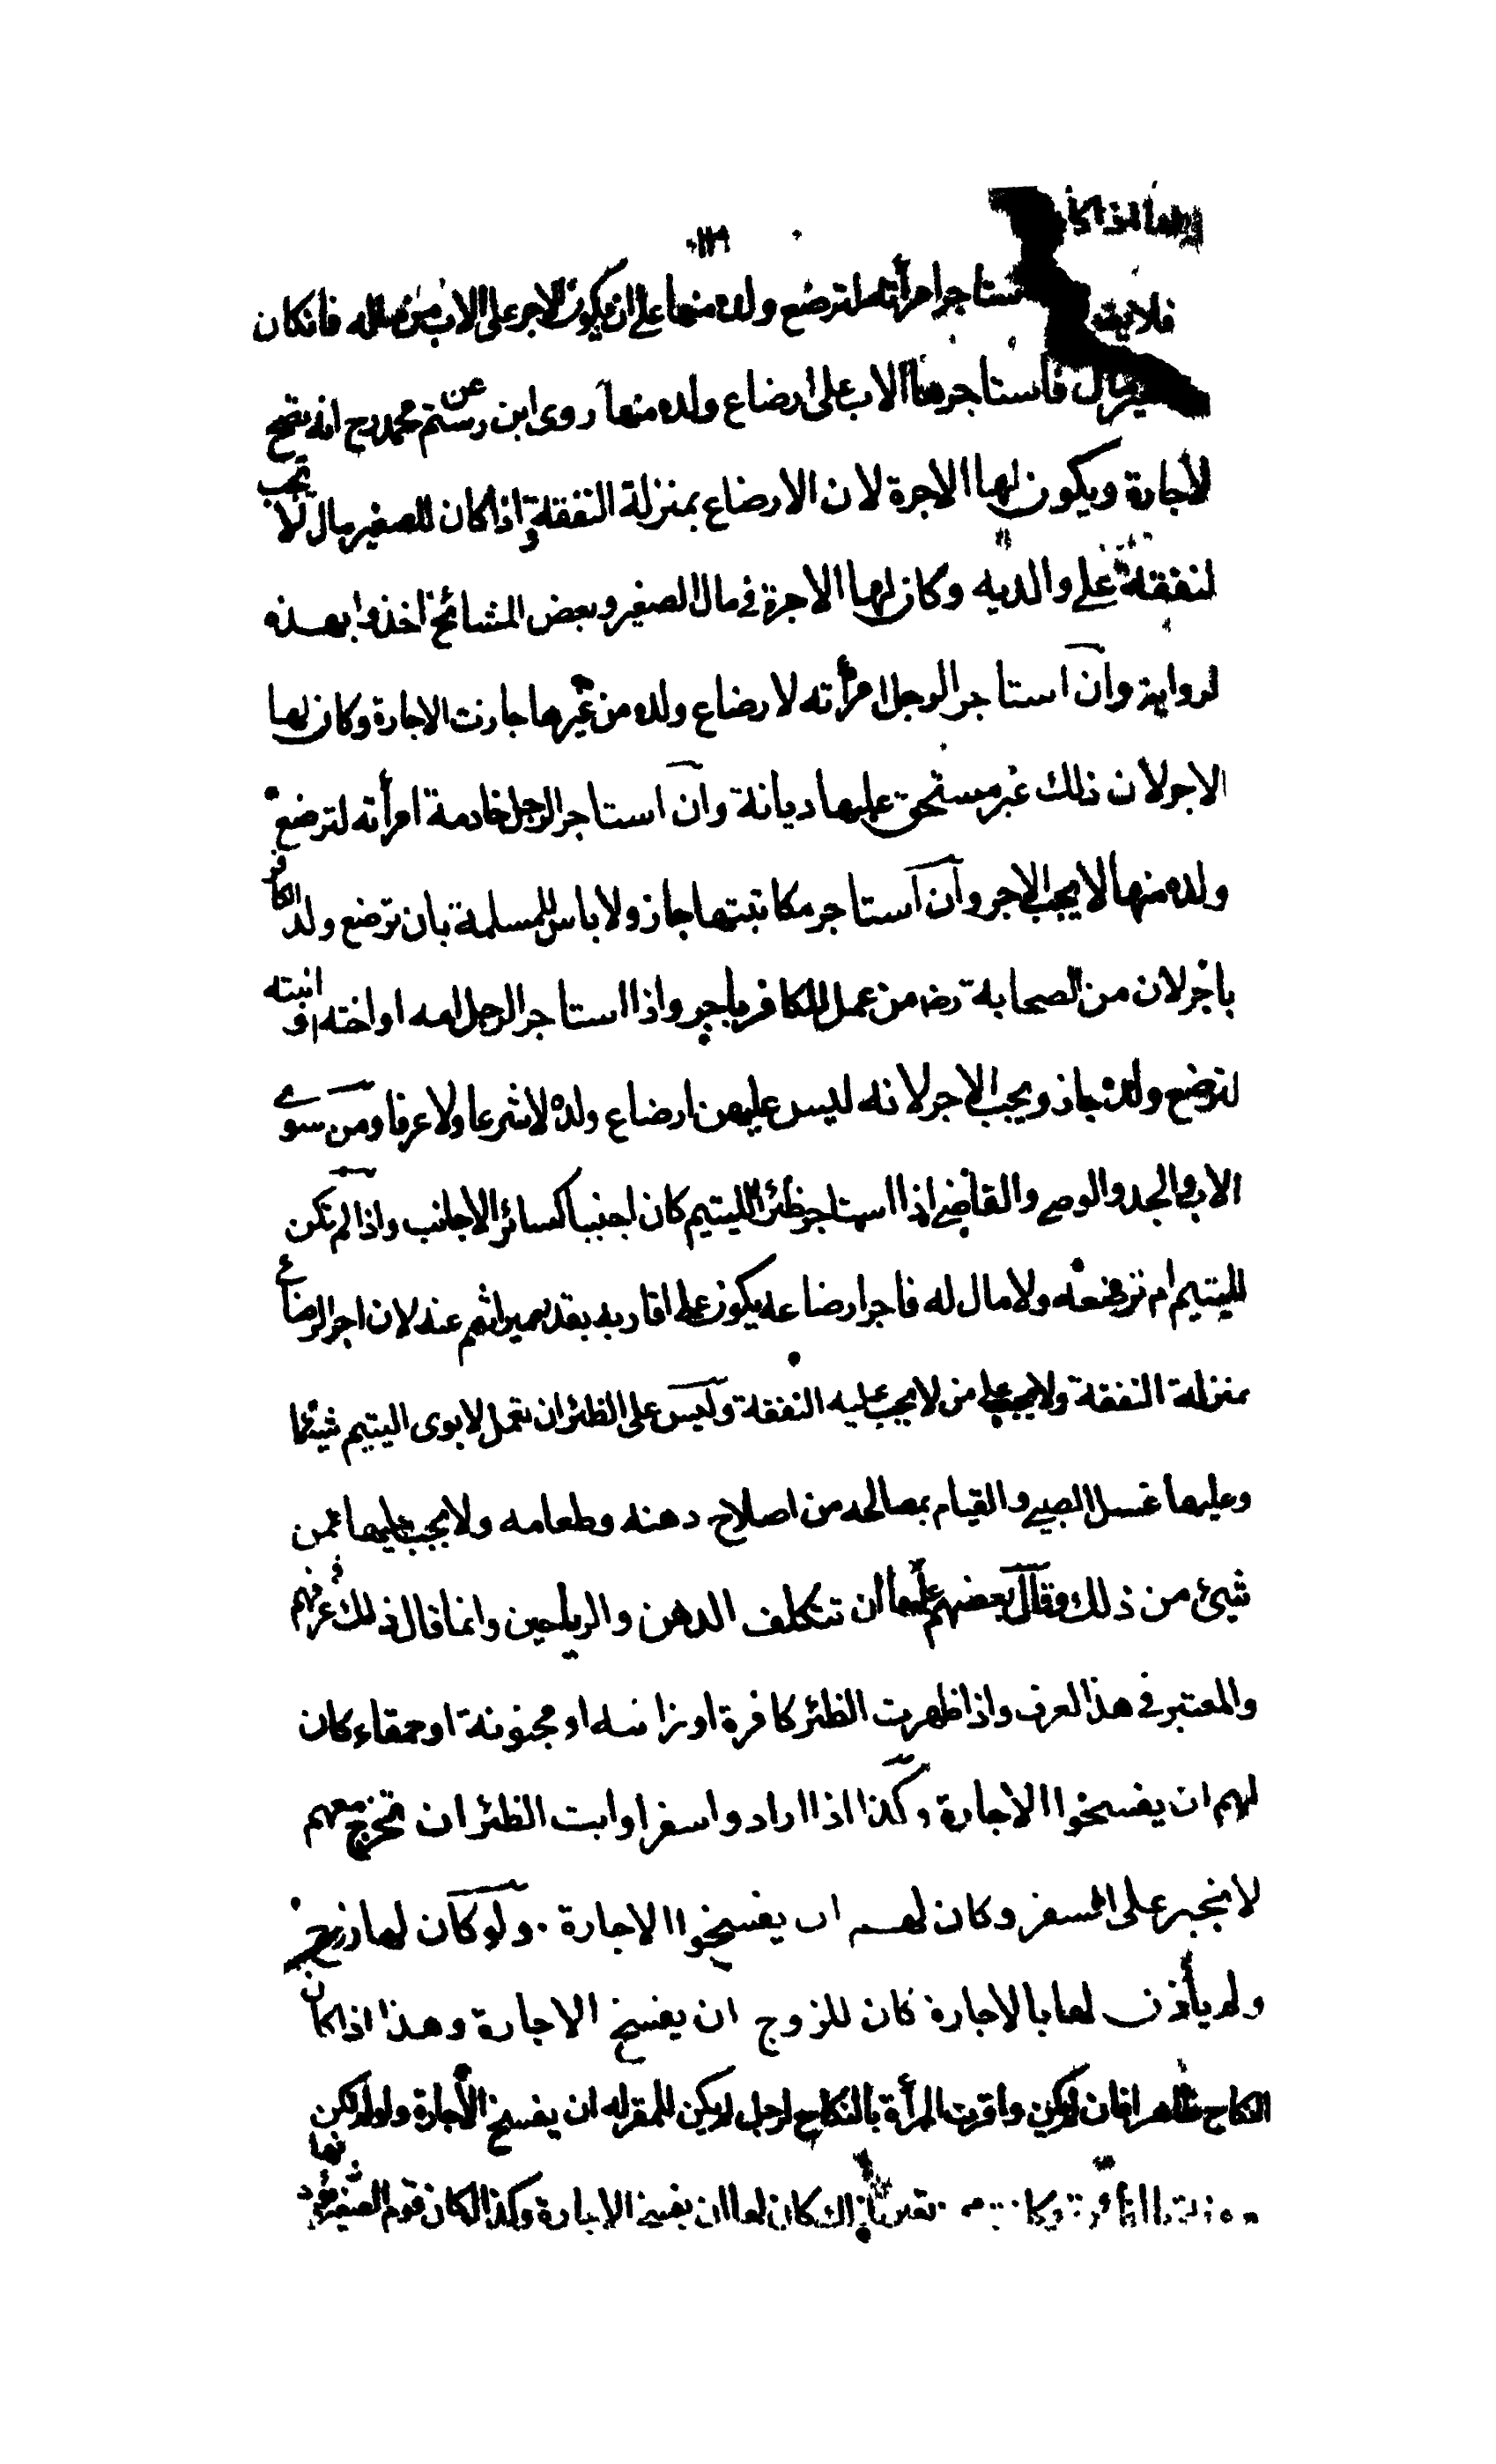 ١١٣
فلايجب ستاجر امرأته لترضع ولده منها على ان يكون الاجر على الاب من ماله فانكان
مال فاستاجرها الاب على ارضاع ولده منها روى ابن رستم عن محمد رح انه تصح
لاجارة ويكون لها الاجرة لان الارضاع بمنزلة النفقة واذا كان للصغير مال لا تجب
لنفقة على والديه وكان لها الاجرة في مال الصغير وبعض المشائخ اخذوا بهذه
لرواية وان استاجر الرجل امرأته لارضاع ولده من غيرها جازت الاجارة وكان لها
الاجر لان ذلك غير مستحق عليها ديانة وان استاجر الرجل خادمة امرأته لترضع
ولده منها لا يجب الاجر وان استاجر مكاتبتها جاز ولا باس للمسلمة بان ترضع ولد الكافر
باجر لان من الصحابة رض من عمل للكافر باجر واذا استاجر الرجل امه او اخته او ابنته
لترضع ولده جاز ويجب الاجر لانه ليس عليهن ارضاع ولده لا شرعا ولا عرفا ومن سوى
الاب والجد والوصي والقاضي اذا استاجر ظئرا لليتيم كان اجنبيا كسائر الاجانب واذا لم تكن
لليتيم ام ترضعه ولا مال له فاجر ارضاعه يكون على اقاربه بقدر ميراثهم عنه لان اجر الرضاع
بمنزلة النفقة ولا يجب على من لا يجب عليه النفقة وليس على الظئر ان تعمل لابوى اليتيم شيئا
وعليها غسل الصبي والقيام بمصالحه من اصلاح دهنه وطعامه ولا يجب عليها ثمن
شيئ من ذلك وقال بعضهم عليها ان تتكلف الدهن والرياحين وانما قال ذلك عرفهم
والمعتبر في هذا العرف واذا ظهرت الظئر كافرة او زانيه او مجنونة او حمقاء كان
لهم ان يفسخوا الاجارة وكذا اذا ارادوا سفرا وابت الظئر ان تخرج معهم
لا تجبر على السفر وكان لهم ان يفسخوا الاجارة ولو كان لها زوج
ولم يأذن لها بالاجارة كان للزوج ان يفسخ الاجارة وهذا اذا كان
النكاح ظاهرا فان لم يكن واقرت المرأة بالنكاح لرجل لم يكن للمقر له ان يفسخ الاجارة ولو لم تكن
كان لها ان يفسخ الاجارة وكذا لو كان قوم الصغير